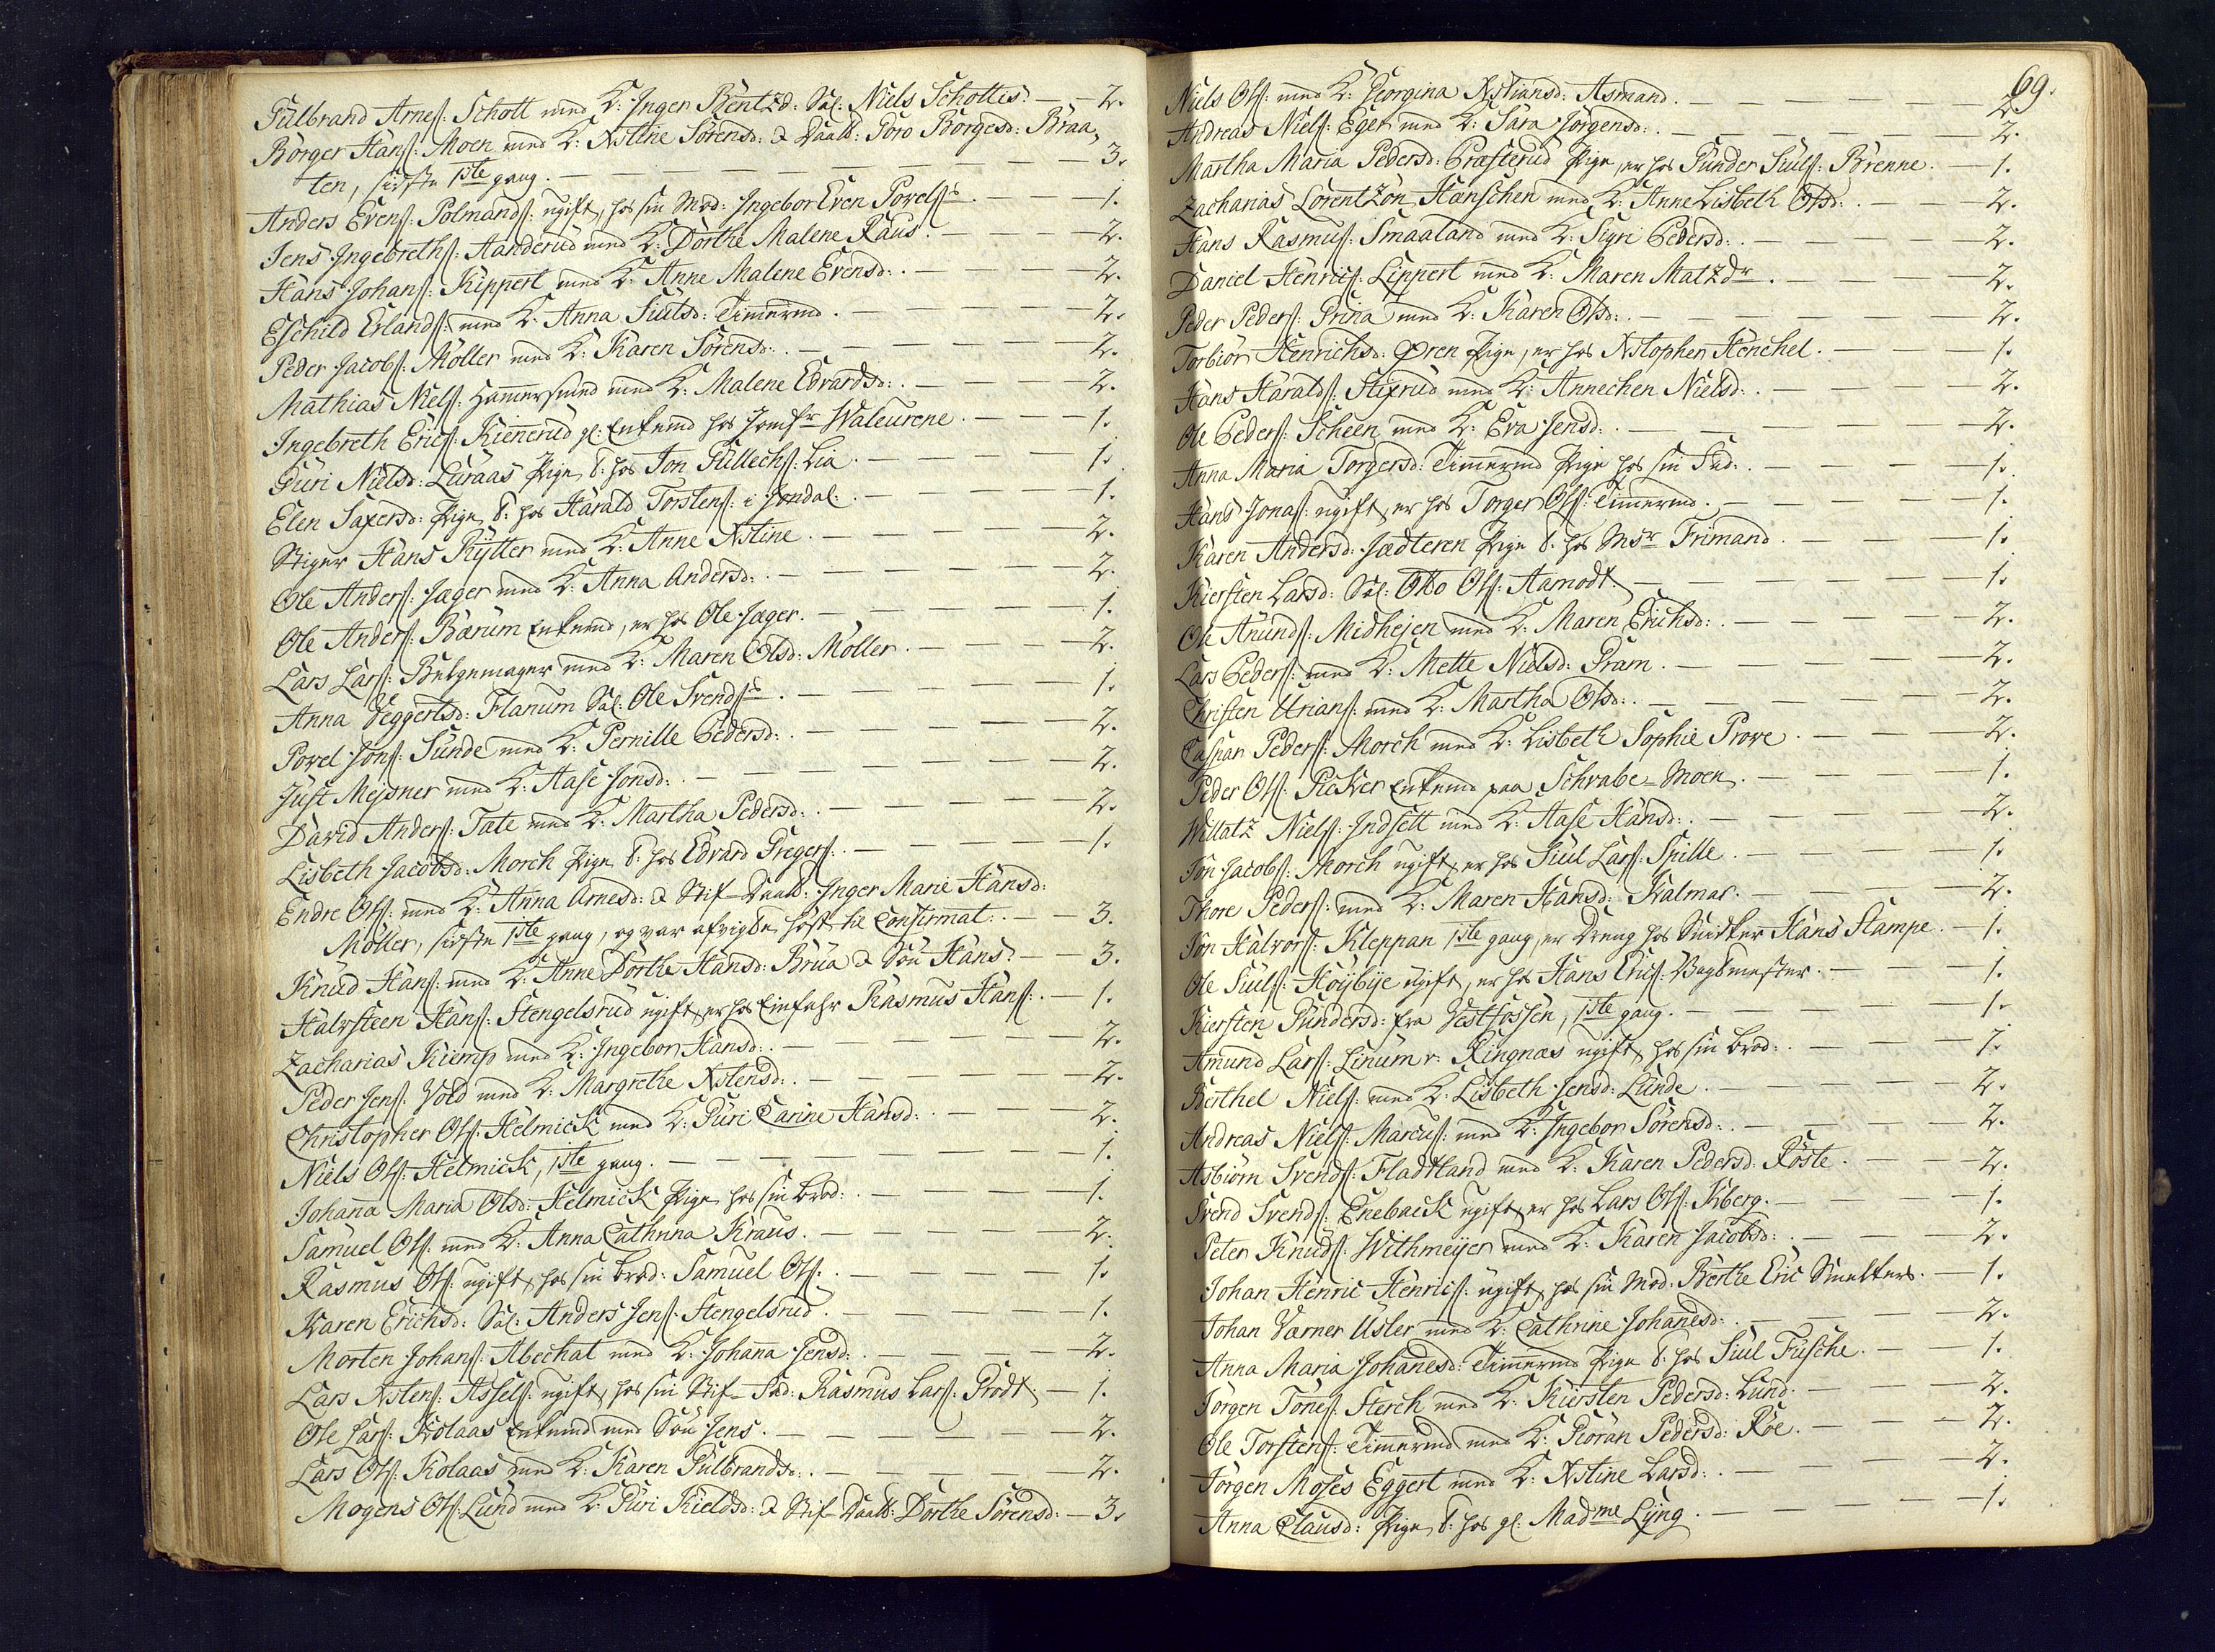 Gulbrand Arnes: Schott med K: Inger Bentzd: Sal: Niels Schottes. — — 2.
Börger Hans: Moen med K: Xstine Sörensd: & Daatt: Goro Börgesd: Braa-
ten, sidste 1ste gang. — — — — — — — — 3.
Anders Evens: Polmands: ugift, hos sin Mod: Ingebor Even Povels: — 1.
Jens Ingebreths: Aanderud med K: Dorthe Malene Raus. — — — 2.
Hans Johans: Kippert med K: Anne Malene Evensd: — — — 2.
Eschild Erlands: med K: Anna Juulsd: Timmermd. — — — — 2.
Peder Jacobs: Möller med K: Karen Sörensd: — — — — — 2.
Mathias Niels: Hammersmed med K: Malene Edvardsd: — — — — 2.
Ingebreth Erics: Kiennerud gl: Enkemd hos Jomfr Waleurene. — — — 1.
Guri Nielsd: Luraas Pige, t: hos Jon Gullechs: Lia. — — — — 1.
Elen Saxersd: Pige, t: hos Harald Torstens: i Jondal. — — — — 1.
Stiger Hans Rytter med K: Anne Xstine. — — — — — 2.
Ole Anders: Jæger med K: Anna Andersd: — — — — — 2.
Ole Anders: Bærum Enkemd, er hos Ole Jæger. — — — — — 1.
Lars Lars: Belgemager med K: Maren Olsd: Möller. — — — — 2.
Anna Veggertsd: Flanum Sal: Ole Svends: — — — — — 1.
Povel Jons: Sunde med K: Pernille Pedersd: — — — — — 2.
Just Meisner med K: Aase Jonsd: — — — — — — 2.
David Anders: Tate med K: Martha Pedersd: — — — — 2.
Lisbeth Jacobsd: Morch Pige, t: hos Edvard Gregers: — — — — 1.
Endre Ols: med K: Anna Arnesd: & Stif-Daatt: Inger Marie Hansd:
Möller, sidste 1ste gang, og var afvigte höst til Confirmat: — — 3.
Knud Hans: med K: Anne Dorthe Hansd: Brua & Sön Hans. — — 3.
Halvsteen Hans: Stengelsrud ugift, er hos Einfahr Rasmus Hans: — 1.
Zacharias Kiemp med K: Ingebor Hansd: — — — — — 2.
Peder Jens: Vold med K: Margrethe Xstensd: — — — — — 2.
Christopher Ols: Helmick med K: Guri Carine Hansd: — — — 2.
Niels Ols: Helmick, 1ste gang. — — — — — — 1.
Johanna Maria Olsd: Helmick Pige, hos sin Brod: — — — — 1.
Samuel Ols: med K: Anna Cathrina Kraus. — — — — 2.
Rasmus Ols: ugift, hos sin Brod: Samuel Ols: — — — — 1.
Karen Erichsd: Sal: Anders Jens: Stengelsrud. — — — — 1.
Morten Johans: Abechat med K: Johanna Jensd: — — — — 2.
Lars Xstens: Assels: ugift, hos sin Stif-Fad: Rasmus Lars: Brodt. — 1.
Ole Lars: Kolaas Enkemd med Sön Jens. — — — — — 2.
Lars Ols: Kolaas med K: Karen Gulbrandsd: — — — — 2.
Mogens Ols: Lund med K: Guri Kieldsd: & Stif-Daatt: Dorthe Sörensd: — 3.
69.
Niels Ols: med K: Georgina Xstiansd: Asmand. — — — — 2.
Andreas Niels: Eger med K: Sara Jörgensd: — — — — — 2.
Martha Maria Pedersd: Præsterud Pige, er hos Gunder Juuls: Brenne. — 1.
Zacharias Lorentzön Hanschen med K: Anne Lisbeth Olsd: — — 2.
Hans Rasmus: Smaaland med K: Sigri Pedersd: — — — — 2.
Daniel Henrics: Lippert med K: Maren Matzdr. — — — 2.
Peder Peders: Prina med K: Karen Olsd: — — — — — 2.
Torbiör Henrichsd: Ören Pige, er hos Xstopher Henchel. — — — 1.
Hans Haralds: Stixrud med K: Annechen Nielsd: — — — — 2.
Ole Peders: Scheen med K: Eva Jensd: — — — — — 2.
Anna Maria Torgersd: Timmermd Pige hos sin Fad: — — — — 1.
Hans Jonas: ugift, er hos Torger Ols: Timmermd. — — — 1.
Karen Andersd: Jædteren Pige t: hos Msr Frimand. — — — 1.
Kiersten Larsd: Sal: Otto Ols: Aamodt. — — — — — 1.
Ole Anunds: Midhejen med K: Maren Erichsd: — — — — 2.
Lars Peders: med K: Mette Nielsd: Pram. — — — — — 2.
Christen Urians: med K: Martha Olsd: — — — — — 2.
Caspar Peders: Morch med K: Lisbeth Sophie Prove. — — — 2.
Peder Ols: Picker Enkemd paa Schrabe-Moen. — — — — 1.
Willatz Niels: Indsett med K: Aase Hansd: — — — — 2.
Jon Jacobs: Morch ugift, er hos Juul Lars: Spille. — — — — 1.
Thore Peders: med K: Maren Hansd: Kalmar. — — — — 2.
Jon Halvors: Kleppan 1ste gang, er Dreng hos Snidker Hans Stampe. — 1.
Ole Juuls: Höybye ugift, er hos Hans Erics: Bagtmester. — — — 1.
Kiersten Gundersd: fra Vestfossen, 1ste gang. — — — — 1.
Amund Lars: Linum v: Ringnæs ugift, hos sin Brod: — — — 1.
Berthel Niels: med K: Lisbeth Jensd: Lunde. — — — — 2.
Andreas Niels: Marcus: med K: Ingebor Sörensd: — — — — 2.
Asbiörn Svends: Fladtland med K: Karen Pedersd: Röste. — — — 2.
Svend Svends: Eneback ugift, er hos Lars Ols: Kiberg. — — — — 1.
Peter Knuds: Withmeyer med K: Karen Jacobsd: — — — — 2.
Johan Henric Henrics: ugift, hos sin Mod: Berthe Eric Smelters. — 1.
Johan Værner Usler med K: Cathrine Johannesd: — — — — 2.
Anna Maria Johannesd: Timmermd Pige t: hos Juul Fusche. — — 1.
Jörgen Tönes: Sterch med K: Kiersten Pedersd: Lund. — — — 2.
Ole Torstens: Timmermd med K: Giöran Pedersd: Röe. — — — 2.
Jörgen Moses Eggert med K: Xstine Larsd: — — — — 2.
Anna Clausd: Pige, t: hos gl: Madme Lyng. — — — — 1.